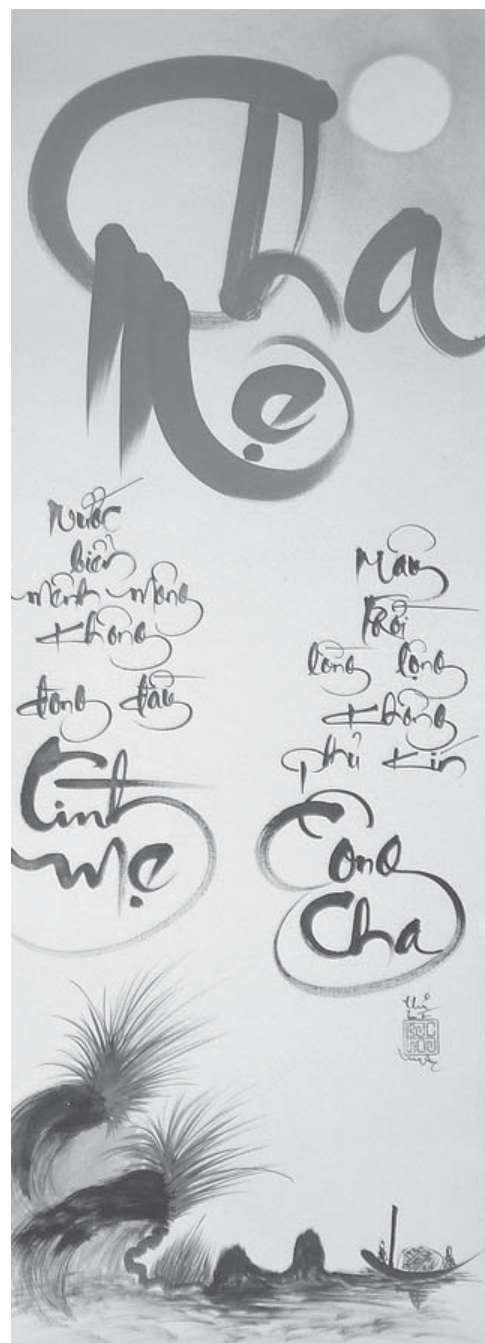 Cha
Mẹ
Nước
biển
mênh mông
không
đong đầy
Tình
Mẹ
Mây
Trời
lồng lộng
không
phủ kín
Công
Cha
thủ
bút